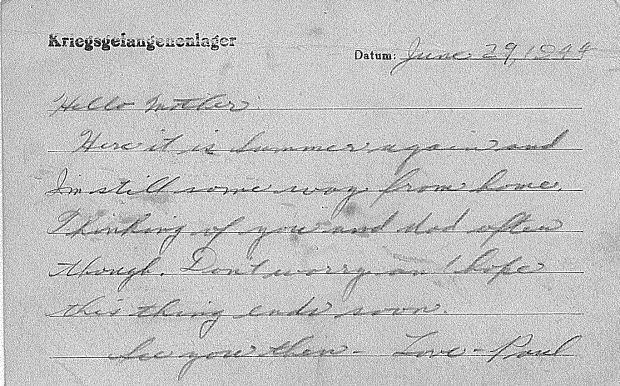 Kriegsgefangenenlager
Datum: June 29, 1944
Hello Mother
Here it is summer again and
I'm still some way from home.
Thinking of you and dad often
though. Don't worry an I hope
this thing ends soon.
See you then - Love - Paul